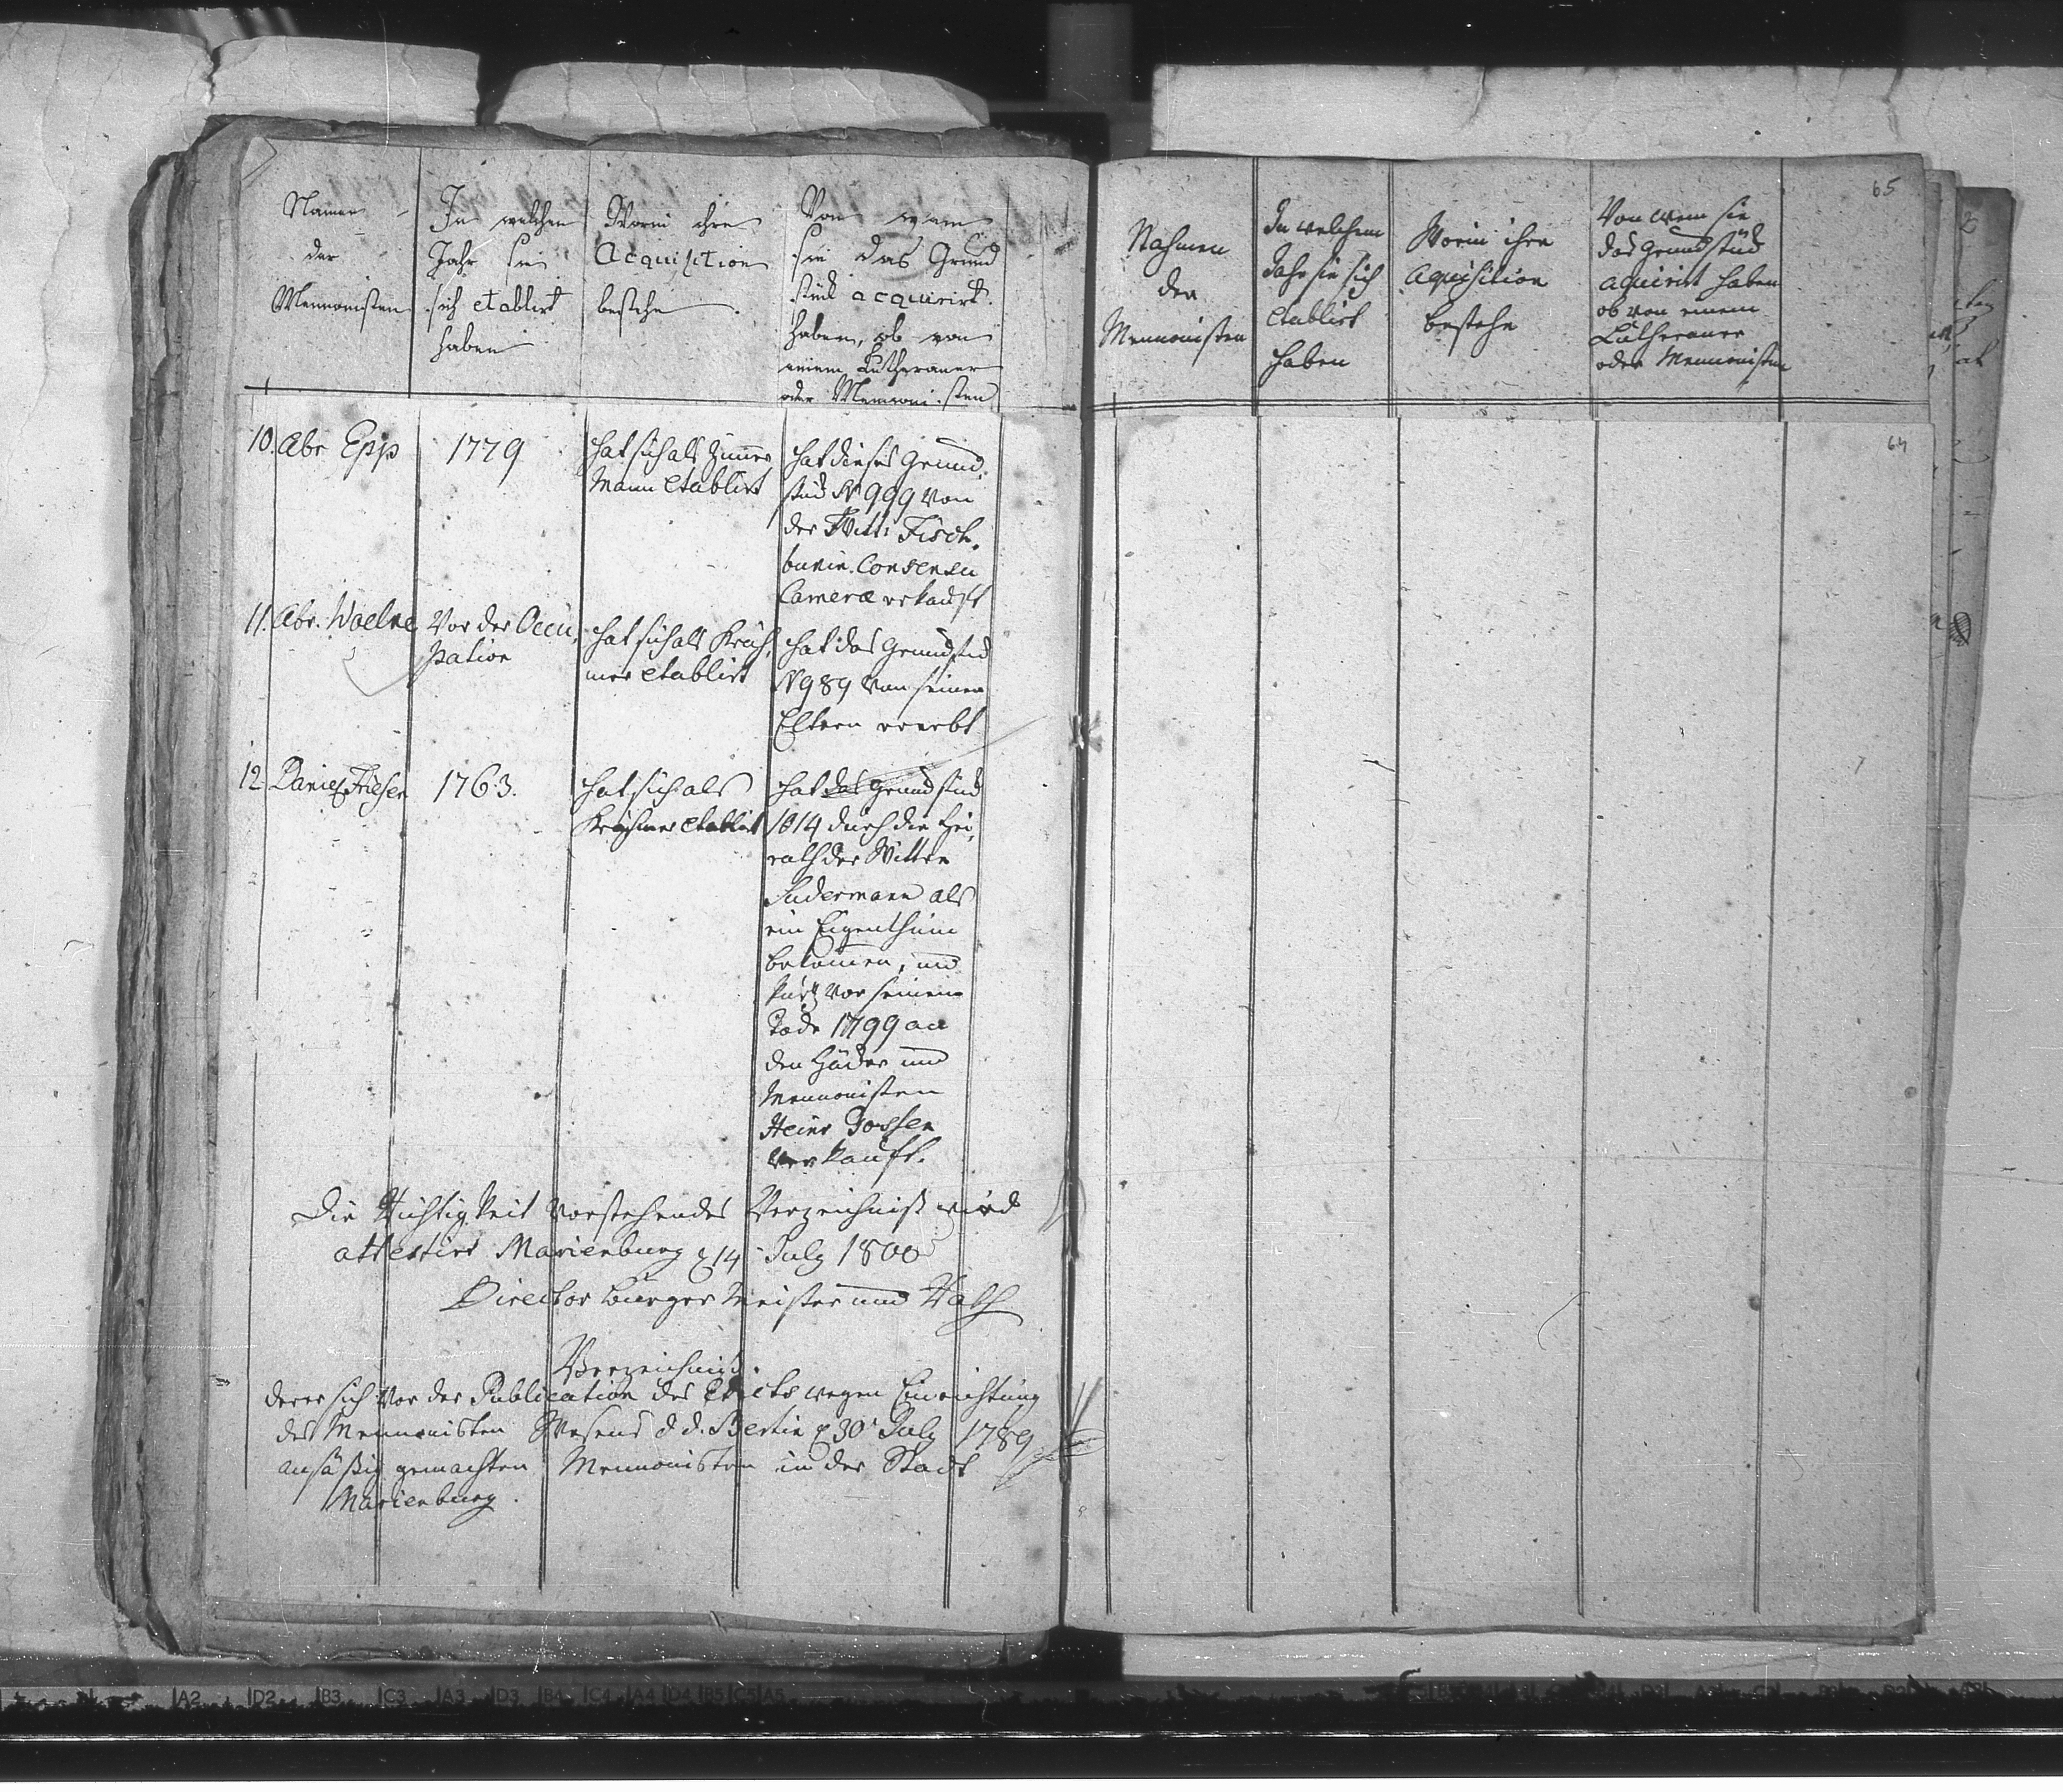 Namen
der
Mennonisten
In welchen
Jahr sie
sich etablirt
haben
Worin ihre
Acquisition
bestehe.
Von wem
sie das Grund
stück acquirirt
haben, ob von
einem Lutheraner
oder Mennonisten
10. Abr Epp
1779
hat sich als Zimmer
Mann etablirt
hat dieses Grund
stück N 999 von
der Witt: Fisch
Consensu
Camerae erkauft
11. Abr. Woelke
Vor der Occu,
pation
hat sich als Kräh,
mer etablirt
hat das Grundstück
N 989 von seinen
Eltern ererbt
12. Daniel Friesen
1763.
hat sich als
Krähmer etablirt
hat das Grundstück
1014 durch die Hei,
rath der Wittwe
Sudermann als
ein Eigenthum
bekommen, und
kurtz vor seinem
Tode 1799 an
den Häcker und
Mennonisten
Heinr Jossen
verkauft.
Die Richtigkeit vorstehendes Verzeichniß wird
attestirt Marienburg d 14 July 1800
Director Burger Meister und Rath
Verzeichniß.
derer sich vor der Publication des Edicts wegen Einrichtung
des Mennonisten Wesens d. d. Berlin d 30 July 1789
ansäßig gemachten Mennonisten in der Stadt
Marienburg.
65
Nahmen
der
Mennonisten
In welchem
Jahr sie sich
etablirt
haben
Worin ihre
Aquisition
bestehe
Von wem sie
das Grundstück
aquirirt haben
ob von einem
Lutheraner
oder Mennonisten
64
A2 D2 B3 C3 A3 D3 B4 C4 A4 D4 B5 C5 A5